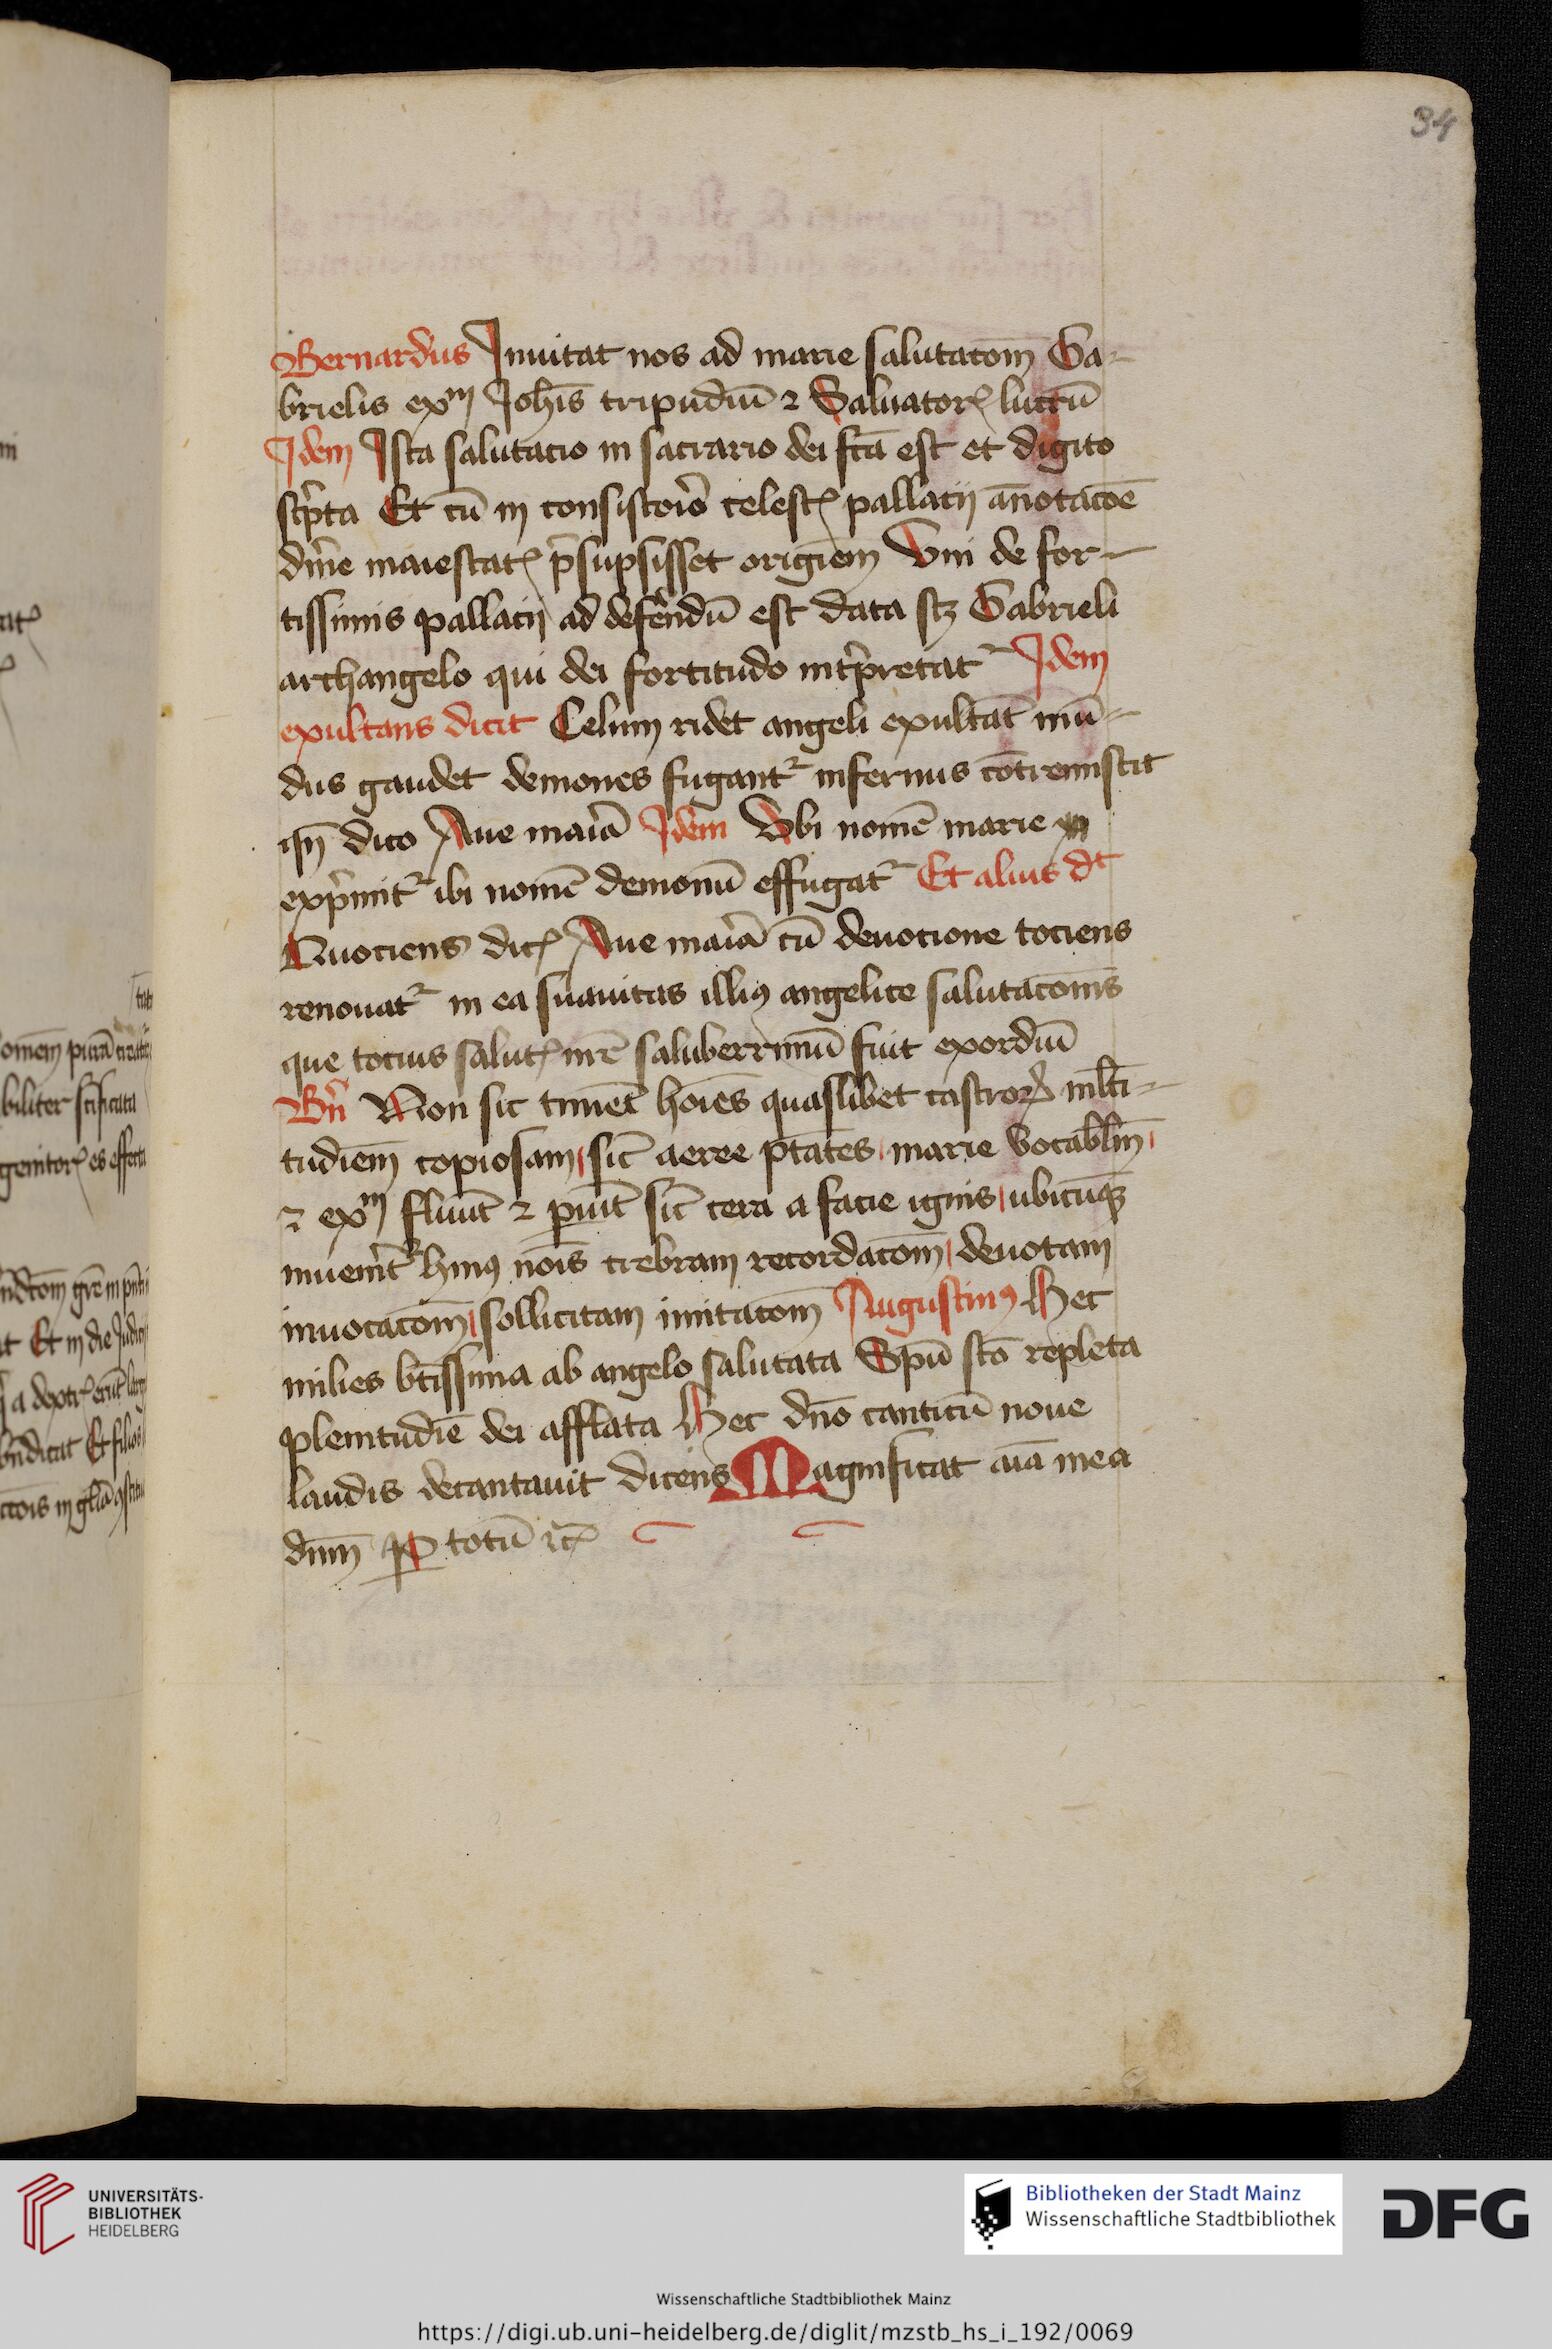 34
Bernardus Inuitat nos ad marie salutatom̄ Ga-
brielis exm̄ Joh̄is tripudiū ⁊ Saluatorꝭ lucrū
Idem Ista salutacio in sacrario dei fc̄a est et digito
scͥpta Et cū in consistorio celestꝭ pallacij ānotacōe
diuīe maiestatꝭ p̄supsisset origīem Vni de for-
tissimis pallacij ad defēndū est data scꝫ Gabrieli
archangelo qui dei fortitudo int̄pretat᷑ Idem
exultans dicit Celum ridet angeli exultāt mū-
dus gaudet demones fugant᷑ infernus cōtremiscit
qn̄ dico Aue maria Idem Vbi nomē marie
expͥmit᷑ ibi nomē demonū effugat᷑ Et alius dt
Quociens dicꝭ Aue maria cū deuocione tociens
renouat᷑ in ea suauitas illiꝰ angelice salutacōnis
que tocius salutꝭ nr̄e saluberrimū fuit exordiū
Bn̄ Non sic timēt hoīes quaslibet castroꝝ ml̄ti-
tudīem copiosam sic̄ aeree ptātes marie vocabl̄m
⁊ exm̄ fluūt ⁊ ꝑeūt sic̄ cera a facie ignis ubicūqꝫ
inuenīt᷑ hui9 noīs crebram recordacōm deuotam
inuocacōm sollicitam imitacōm Augustinꝰ Hec
milies btīssima ab angelo salutata Spū sc̄o repleta
plenitudīe dei afflata Hec dn̄o canticū noue
laudis decantauit dicens Magnificat aīa mea
dn̄m ꝑ totū ⁊cꝭ
UNIVERSITÄTS-
BIBLIOTHEK
HEIDELBERG
Bibliotheken der Stadt Mainz
Wissenschaftliche Stadtbibliothek
DFG
Wissenschaftliche Stadtbibliothek Mainz
https://digi.ub.uni-heidelberg.de/diglit/mzstb_hs_i_192/0069